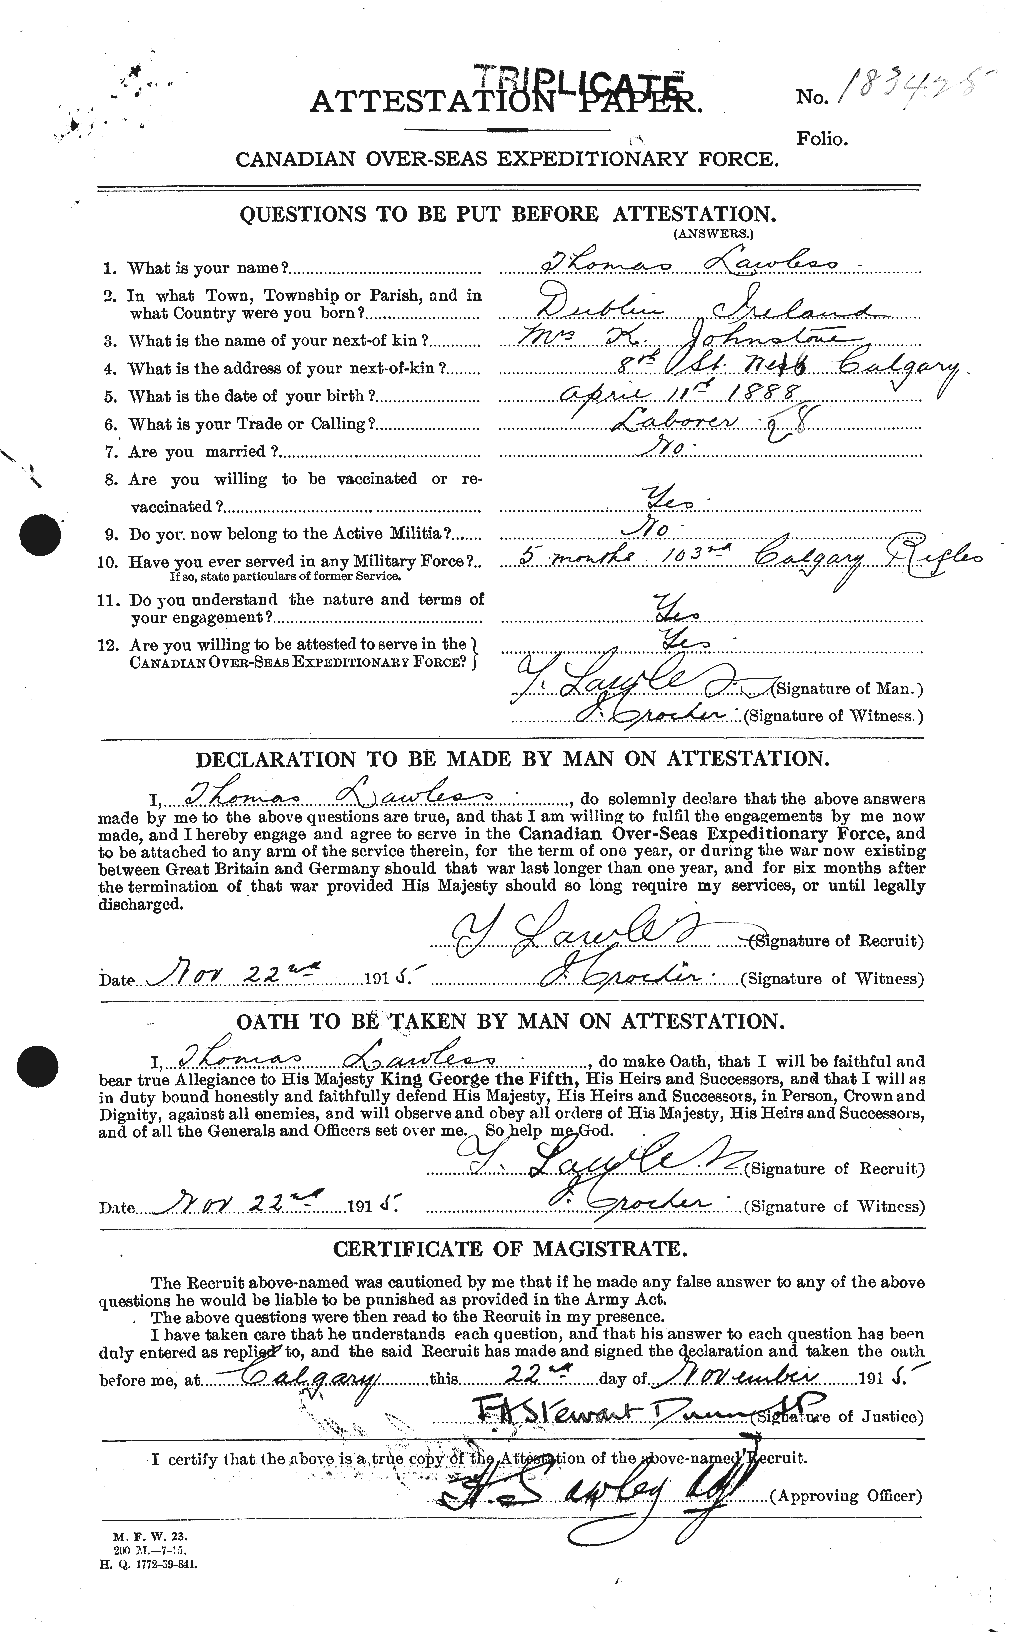 TRIPLICATE
ATTESTATION PAPER.
No. 183425
Folio.
CANADIAN OVER-SEAS EXPEDITIONARY FORCE.
QUESTIONS TO BE PUT BEFORE ATTESTATION.
(ANSWERS.)
1. What is your name? Thomas Lawless
2. In what Town, Township or Parish, and in
what Country were you born? Dublin Ireland
3. What is the name of your next-of kin? Mrs K. Johnstone
4. What is the address of your next-of-kin? 8th St. West Calgary
5. What is the date of your birth? April 11th 1888
6. What is your Trade or Calling? Laborer 28
7. Are you married? No
8. Are you willing to be vaccinated or re-
vaccinated? Yes
9. Do you now belong to the Active Militia? No
10. Have you ever served in any Military Force? 5 months 103rd Calgary Rifles
If so, state particulars of former Service.
11. Do you understand the nature and terms of
your engagement? Yes
12. Are you willing to be attested to serve in the } Yes
CANADIAN OVER-SEAS EXPEDITIONARY FORCE?
T. Lawless (Signature of Man.)
J. Crocker (Signature of Witness.)
DECLARATION TO BE MADE BY MAN ON ATTESTATION.
I, Thomas Lawless, do solemnly declare that the above answers
made by me to the above questions are true, and that I am willing to fulfil the engagements by me now
made, and I hereby engage and agree to serve in the Canadian Over-Seas Expeditionary Force, and
to be attached to any arm of the service therein, for the term of one year, or during the war now existing
between Great Britain and Germany should that war last longer than one year, and for six months after
the termination of that war provided His Majesty should so long require my services, or until legally
discharged.
T Lawless (Signature of Recruit)
Date Nov 22nd 1915. J. Crocker (Signature of Witness)
OATH TO BE TAKEN BY MAN ON ATTESTATION.
I, Thomas Lawless, do make Oath, that I will be faithful and
bear true Allegiance to His Majesty King George the Fifth, His Heirs and Successors, and that I will as
in duty bound honestly and faithfully defend His Majesty, His Heirs and Successors, in Person, Crown and
Dignity, against all enemies, and will observe and obey all orders of His Majesty, His Heirs and Successors,
and of all the Generals and Officers set over me. So help me God.
T. Lawless (Signature of Recruit)
Date Nov 22nd 1915. J. Crocker (Signature of Witness)
CERTIFICATE OF MAGISTRATE.
The Recruit above-named was cautioned by me that if he made any false answer to any of the above
questions he would be liable to be punished as provided in the Army Act.
The above questions were then read to the Recruit in my presence.
I have taken care that he understands each question, and that his answer to each question has been
duly entered as replied to, and the said Recruit has made and signed the declaration and taken the oath
before me, at Calgary this 22nd day of November 1915.
Stewart Dunn JP (Signature of Justice)
I certify that the above is a true copy of the Attestation of the above-named Recruit.
(Approving Officer)
M. F. W. 23.
200 M.—7-15.
H. Q. 1772-39-841.